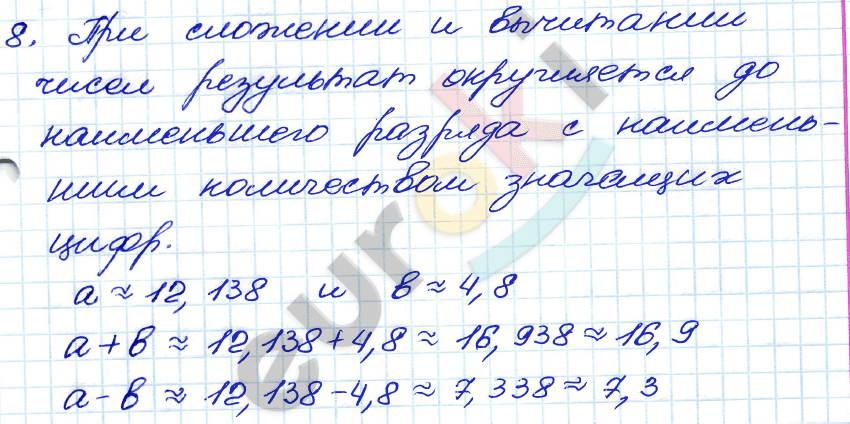 8. При сложении и вычитании
чисел результат округляется до
наименьшего разряда с наимень-
шим количеством значащих
цифр.
a ≈ 12,138 и в ≈ 4,8
a + в ≈ 12,138 + 4,8 ≈ 16,938 ≈ 16,9
a - в ≈ 12,138 - 4,8 ≈ 7,338 ≈ 7,3
euroki